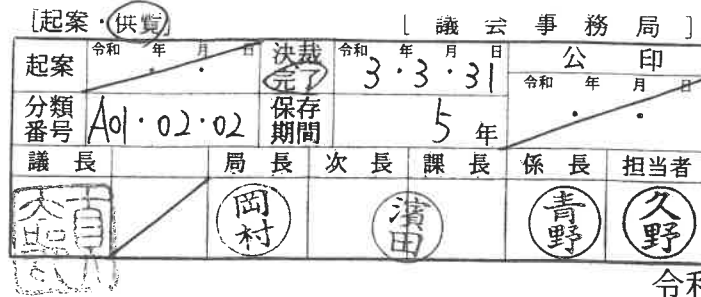 [起案・供覧] [議会事務局]
起案 令和 年 月 日 ・ ・ 決裁 完了 令和 年 月 日 3・3・31 公印
令和 年 月 日 ・ ・
分類番号 A01・02・02 保存期間 5年
議長 局長 次長 課長 係長 担当者
岡村 濱田 青野 久野
令和